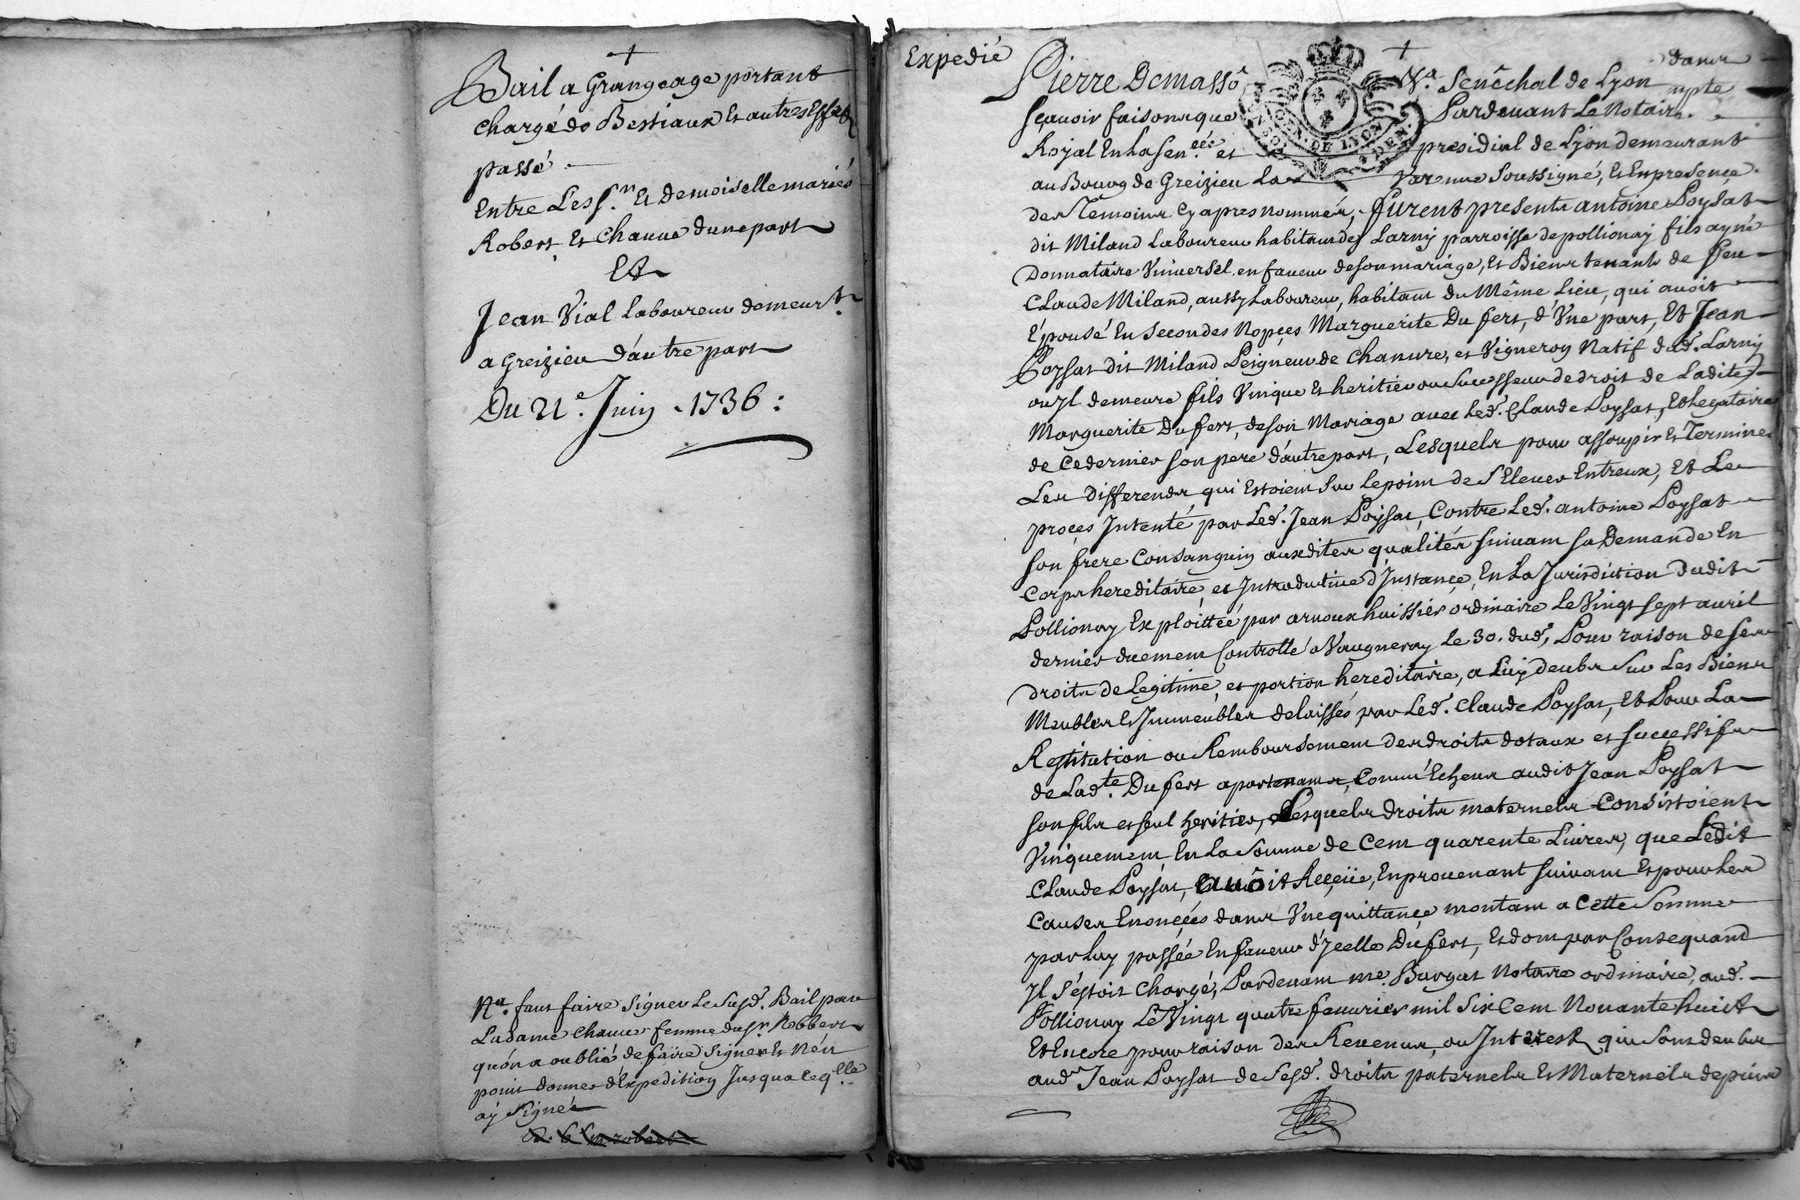 +
Bail a Grangeage portant
chargé de Bestiaux Et autres Effets
passé
Entre Les Sr. Et demoiselle mariés
Robert Et Chauve dune part
Et
Jean Vial Laboureur demeurt.
a Greizieu d'autre part
Du 21e. Juin 1736:
Na. faut faire signer Le susd. Bail par
La dame Chauve femme du sr. Robbert
qu'on a oublié de faire signer Et n'en
point donner d'Expedition Jusqua ce qlle.
ay signée
Expedié
+
Pierre Demasso Sénêchal de Lyon
sçavoir faisons que Pardevant Le Notaire
Royal En La Senéée. et présidial de Lyon demeurant
au Bourg de Greizieu La Varenne Soussigné, Et En presence
des Temoins Cy apres nommés, furent presents antoine Poysat
dit Miland Laboureur habitant de Larny parroisse de pollionay fils ayné
Donnataire Universel en faveur de son mariage, Et Biens tenant de feu
Claude Miland, aussy Laboureur, habitant du Même Lieu, qui avoit
Épousé En Secondes Nopces Marguerite Du fert, d'Une part, Et Jean
Poysat dit Miland Peigneur de chanvre, et Vigneron Natif dud. Larny
ou Jl demeure fils Unique Et heritier ou Successeur de droit de Ladite
Marguerite Du fert, de son Mariage avec Led. Claude Poysat, Et Legataire
de Ce dernier son pere d'autre part, Lesquels pour assoupir Et Terminer
Les differends qui Estoient sur Le point de S'Elever Entreux, Et Le
procès Intenté par Led. Jean Poysat, Contre Led. antoine Poysat
son frere Consanguin auxdites qualités suivant sa Demande En
Corps hereditaire, et Introductive d'Instance, En La Jurisdiction dudit
Pollionay Exploittée par arnoux huissier ordinaire Le Vingt sept avril
dernier duement Controllé a Vaugneray Le 30. dud., Pour raison de ses
droits de Legitime, et portion hereditaire, a Luy deubs sur Les Biens
Meubles Et Immeubles delaissés par Led. Claude Poysat, Et Pour La
Restitution ou Remboursement des droits dotaux et successifs
de Lade. Du fert apartenants, Comm' Echeus audit Jean Poysat
son fils et seul heritier, Lesquels droits maternels Consistoient
Uniquement En La Somme de Cent quarente Livres, que Ledit
Claude Poysat, avoit Reçeüe, En provenant suivant Et pour Les
Causes Enonçées dans Une quittance montant a Cette Somme
par Luy passée En faveur d'Jcelle Du fert, Et dont par Consequand
Jl s'Estoit Chargé, Pardevant me. Burgat Notaire ordinaire, aud.
Pollionay Le Vingt quatre fevrier mil six Cent Nonante huict
Et Encore pour raison des Revenus, ou Interest qui sont deubs
aud. Jean Poysat de Sesd. droits paternels Et Maternels depuis